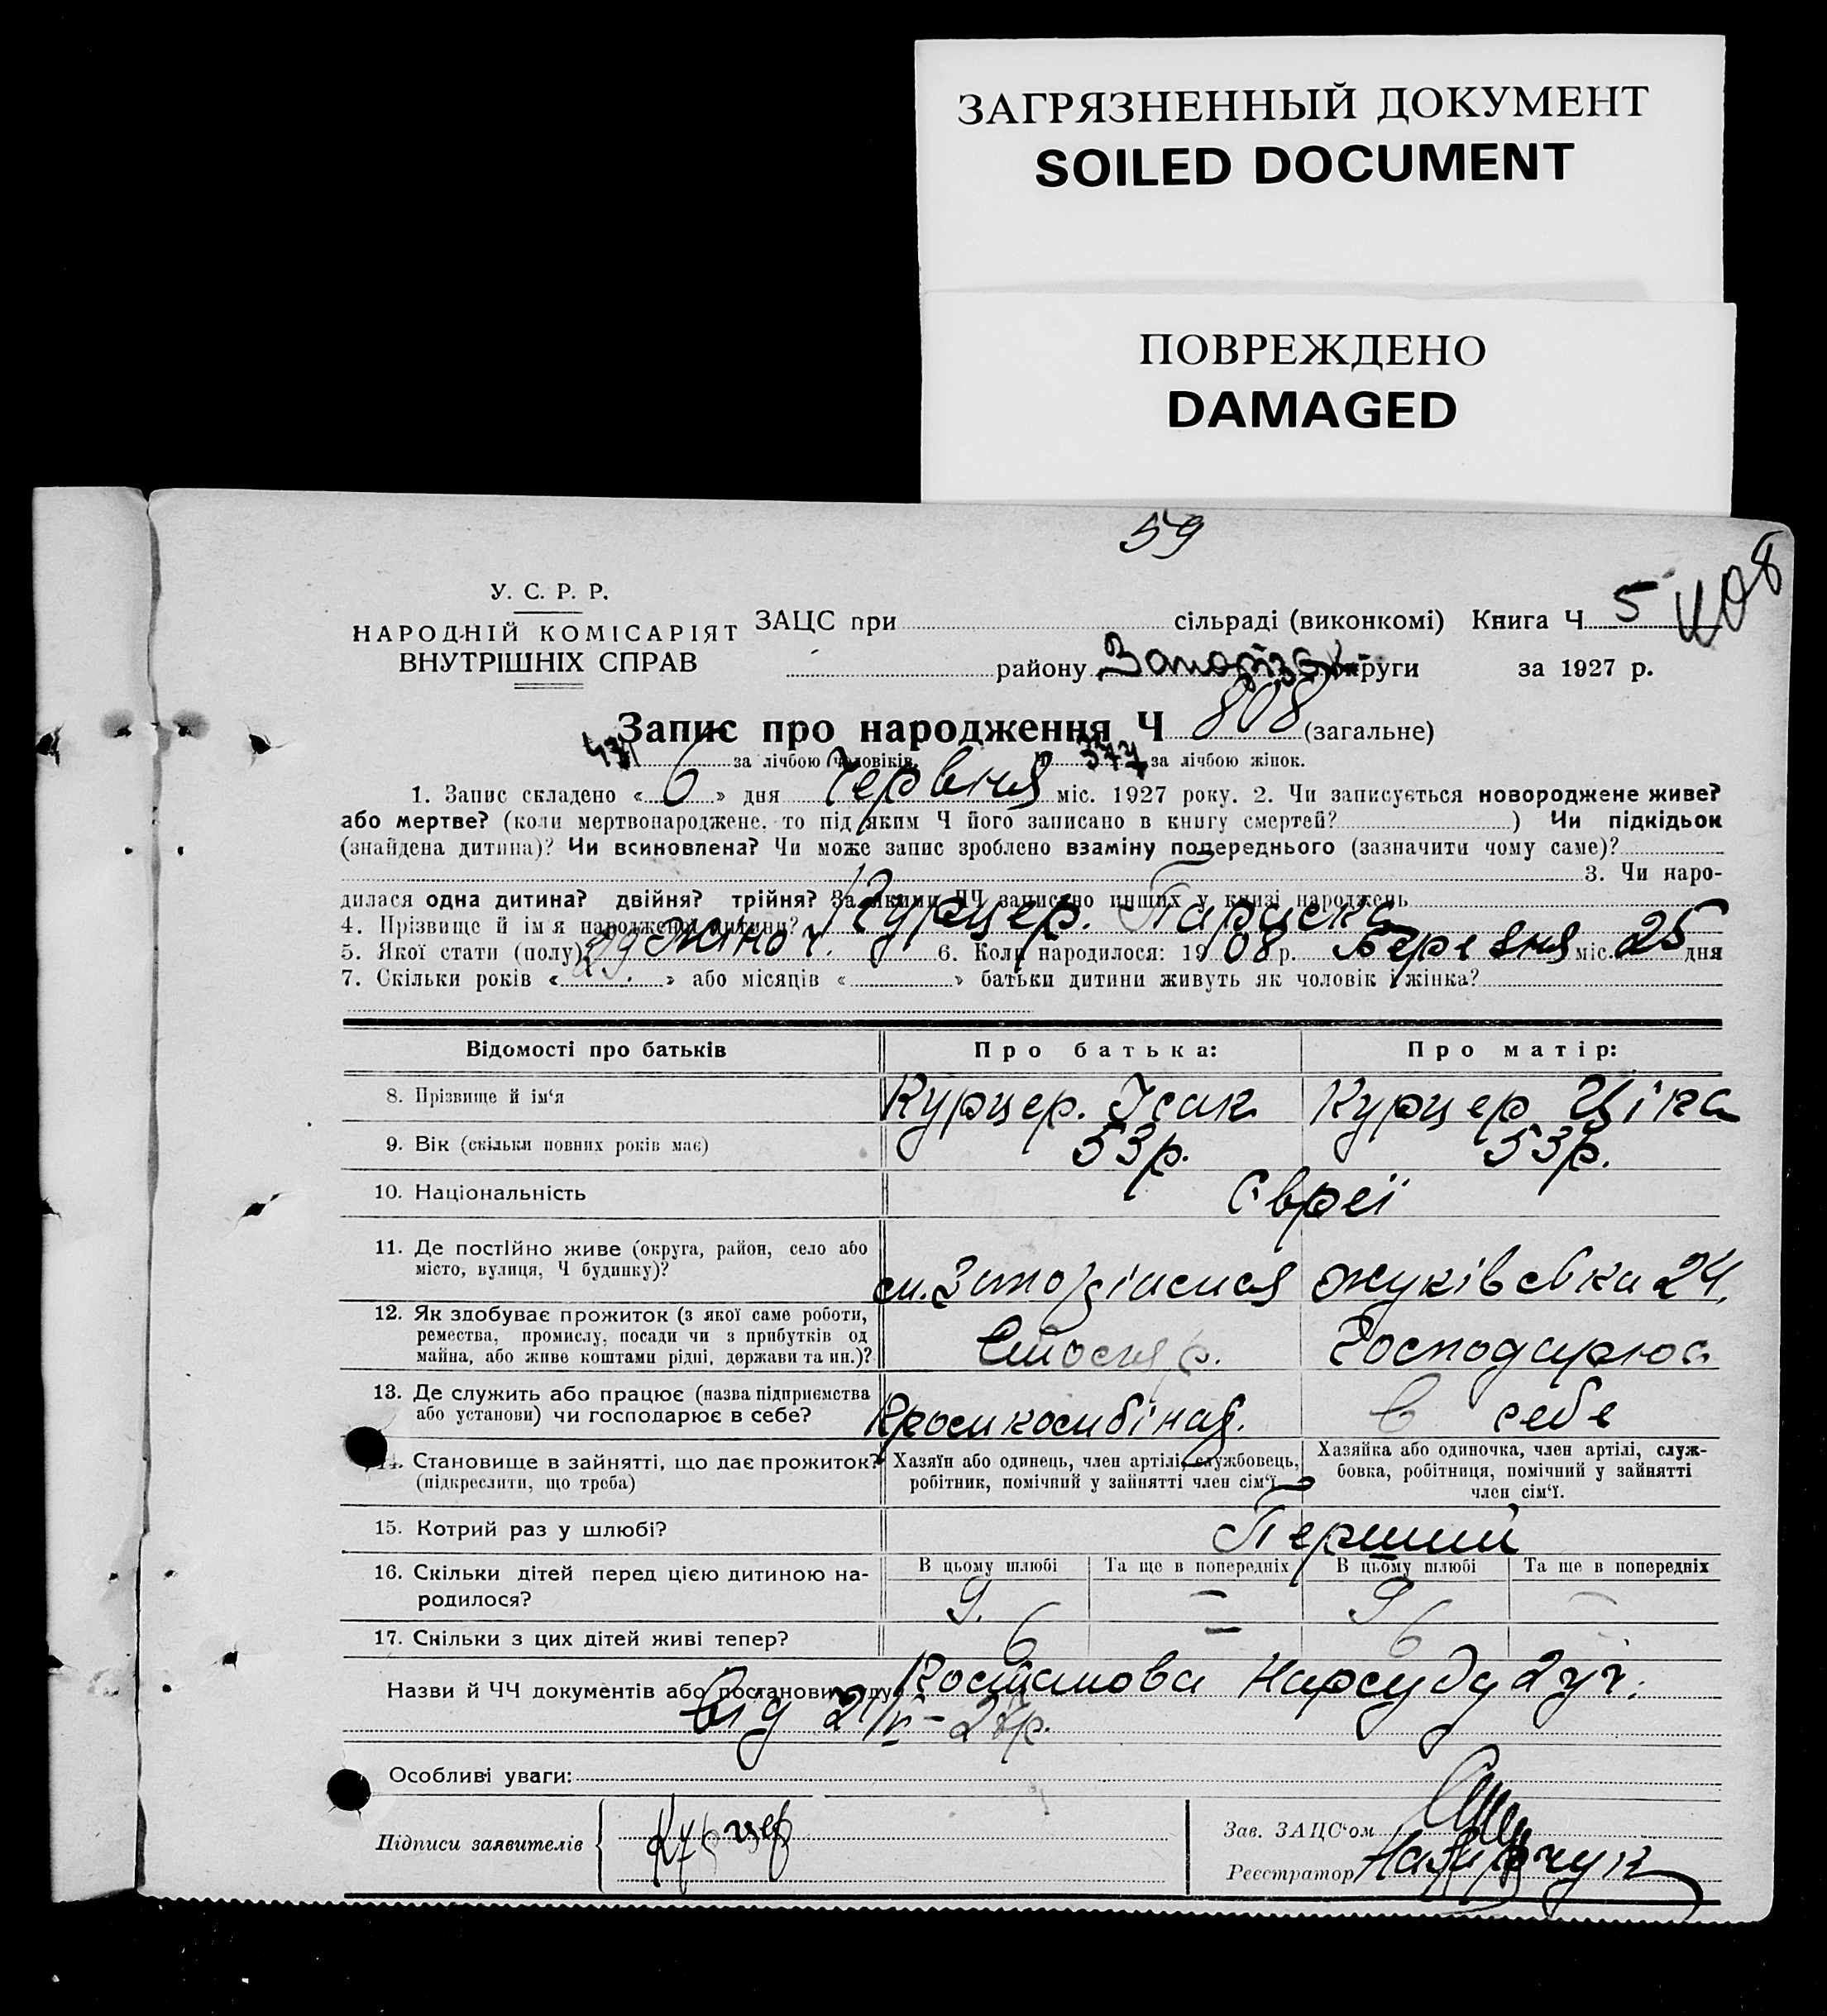 ЗАГРЯЗНЕННЫЙ ДОКУМЕНТ
SOILED DOCUMENT
ПОВРЕЖДЕНО
DAMAGED
59
408
У. С. Р. Р.
НАРОДНІЙ КОМІСАРІЯТ
ВНУТРІШНІХ СПРАВ
ЗАЦС при сільраді (виконкомі) Книга Ч 5
району округи за 1927 р.
Запис про народження Ч 808 (загальне)
431 за лічбою чоловіків, 377 за лічбою жінок.
1. Запис складено « 6 » дня Червня міс. 1927 року. 2. Чи записується новороджене живе?
або мертве? (коли мертвонароджене, то під яким Ч його записано в книгу смертей? ) Чи підкідьок
(знайдена дитина)? Чи всиновлена? Чи може запис зроблено взаміну попереднього (зазначити чому саме)?
3. Чи наро-
дилася одна дитина? двійня? трійня? За якими ЧЧ записано инших у книзі народжень
4. Прізвище й ім'я народженої дитини? Курцер.
5. Якої стати (полу)? жіноч. 6. Коли народилося: 1908 р. Березня міс. 25 дня
7. Скільки років « 29 » або місяців « » батьки дитини живуть як чоловік і жінка?
Відомості про батьків Про батька: Про матір:
8. Прізвище й ім'я Курцер. Ісак Курцер Ціка
9. Вік (скільки повних років має) 53 р. 53 р.
10. Національність Євреї
11. Де постійно живе (округа, район, село або
місто, вулиця, Ч будинку)? Жуківська 24.
12. Як здобуває прожиток (з якої саме роботи,
ремества, промислу, посади чи з прибутків од
майна, або живе коштами рідні, держави та ин.)? Столяр. Господарює
13. Де служить або працює (назва підприємства
або установи) чи господарює в себе? в себе
14. Становище в зайнятті, що дає прожиток?
(підкреслити, що треба)
Хазяїн або одинець, член артілі, службовець,
робітник, помічний у зайнятті член сім'ї
Хазяйка або одиночка, член артілі, служ-
бовка, робітниця, помічний у зайнятті
член сім'ї.
15. Котрий раз у шлюбі? Перший
16. Скільки дітей перед цією дитиною на-
родилося?
В цьому шлюбі Та ще в попередніх В цьому шлюбі Та ще в попередніх
9. — 9 —
17. Скільки з цих дітей живі тепер? 6 — 6 —
Назви й ЧЧ документів або постанови суду Постанова Нарсуду 2 уч.
від 2/VI-27р.
Особливі уваги:
Підписи заявителів Курцер
Зав. ЗАЦС'ом
Реєстратор